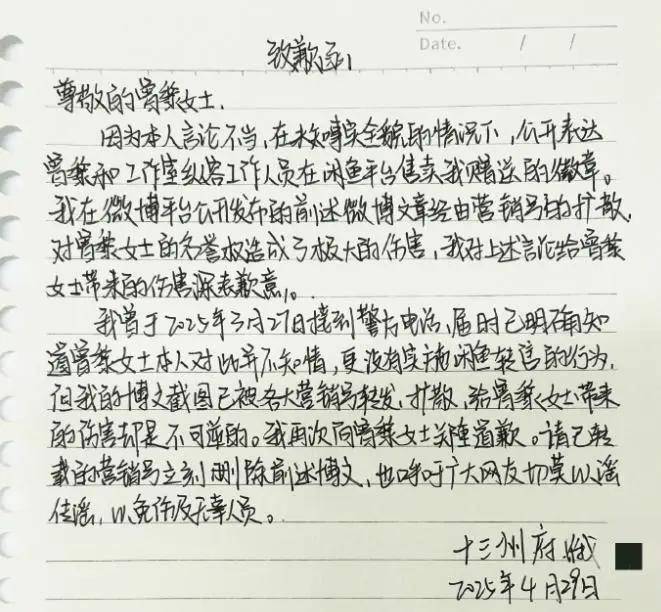 No.
Date. / /
致歉函
尊敬的曾黎女士.
因为本人言论不当,在未知晓事实全貌的情况下,公开表达
曾黎和工作室纵容工作人员在闲鱼平台售卖我赠送的徽章。
我在微博平台公开发布的前述微博文章经由营销号的扩散,
对曾黎女士的名誉权造成了极大的伤害,我对上述言论给曾黎
女士带来的伤害深表歉意。
我曾于2025年3月27日接到警方电话,届时已明确知
道曾黎女士本人对此并不知情,更没有实施闲鱼转售的行为,
但我的博文截图已被各大营销号转发、扩散,给曾黎女士带来
的伤害却是不可逆的。我再次向曾黎女士关注道歉。请已转
载的营销号立刻删除前述博文,也呼吁广大网友切莫以谣
传谣,以免伤及无辜人员。
十三州府
2025年4月29日